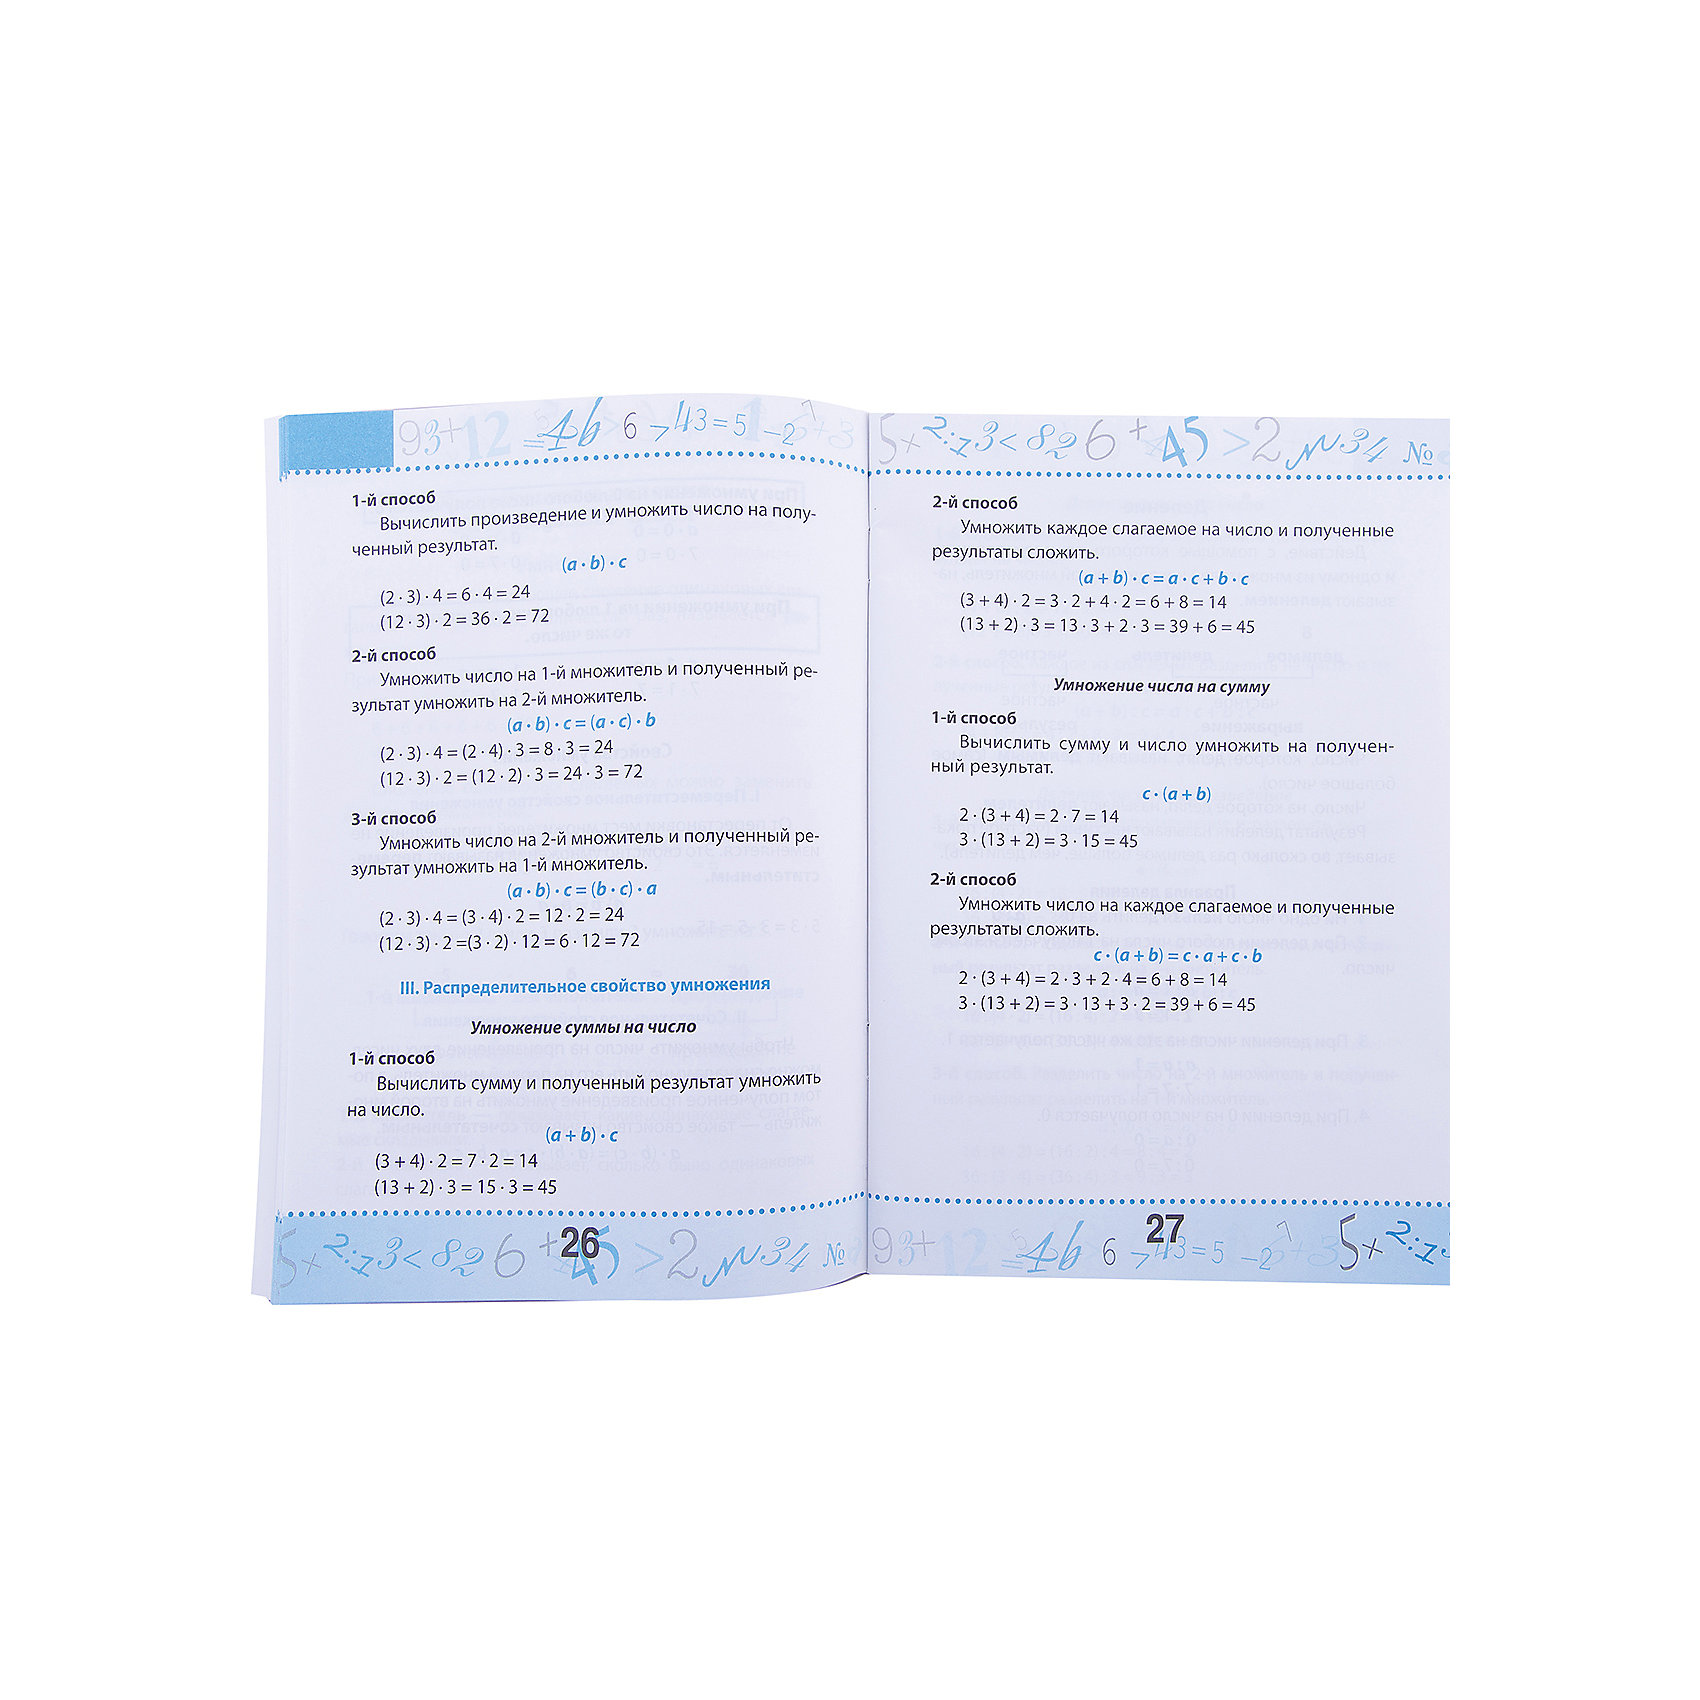 93+12 =4b 6 >43=5 -2
1-й способ
Вычислить произведение и умножить число на полу-
ченный результат.
(a · b) · c
(2 · 3) · 4 = 6 · 4 = 24
(12 · 3) · 2 = 36 · 2 = 72
2-й способ
Умножить число на 1-й множитель и полученный ре-
зультат умножить на 2-й множитель.
(a · b) · c = (a · c) · b
(2 · 3) · 4 = (2 · 4) · 3 = 8 · 3 = 24
(12 · 3) · 2 = (12 · 2) · 3 = 24 · 3 = 72
3-й способ
Умножить число на 2-й множитель и полученный ре-
зультат умножить на 1-й множитель.
(a · b) · c = (b · c) · a
(2 · 3) · 4 = (3 · 4) · 2 = 12 · 2 = 24
(12 · 3) · 2 =(3 · 2) · 12 = 6 · 12 = 72
III. Распределительное свойство умножения
Умножение суммы на число
1-й способ
Вычислить сумму и полученный результат умножить
на число.
(a + b) · c
(3 + 4) · 2 = 7 · 2 = 14
(13 + 2) · 3 = 15 · 3 = 45
5× 2:13< 82 6 +45 >2 №34 №
26
5× 2:13< 82 6 +45 >2 №34 №
2-й способ
Умножить каждое слагаемое на число и полученные
результаты сложить.
(a + b) · c = a · c + b · c
(3 + 4) · 2 = 3 · 2 + 4 · 2 = 6 + 8 = 14
(13 + 2) · 3 = 13 · 3 + 2 · 3 = 39 + 6 = 45
Умножение числа на сумму
1-й способ
Вычислить сумму и число умножить на получен-
ный результат.
c · (a + b)
2 · (3 + 4) = 2 · 7 = 14
3 · (13 + 2) = 3 · 15 = 45
2-й способ
Умножить число на каждое слагаемое и полученные
результаты сложить.
c · (a + b) = c · a + c · b
2 · (3 + 4) = 2 · 3 + 2 · 4 = 6 + 8 = 14
3 · (13 + 2) = 3 · 13 + 3 · 2 = 39 + 6 = 45
27
93+12 =4b 6 >43=5 -2 5× 2:13